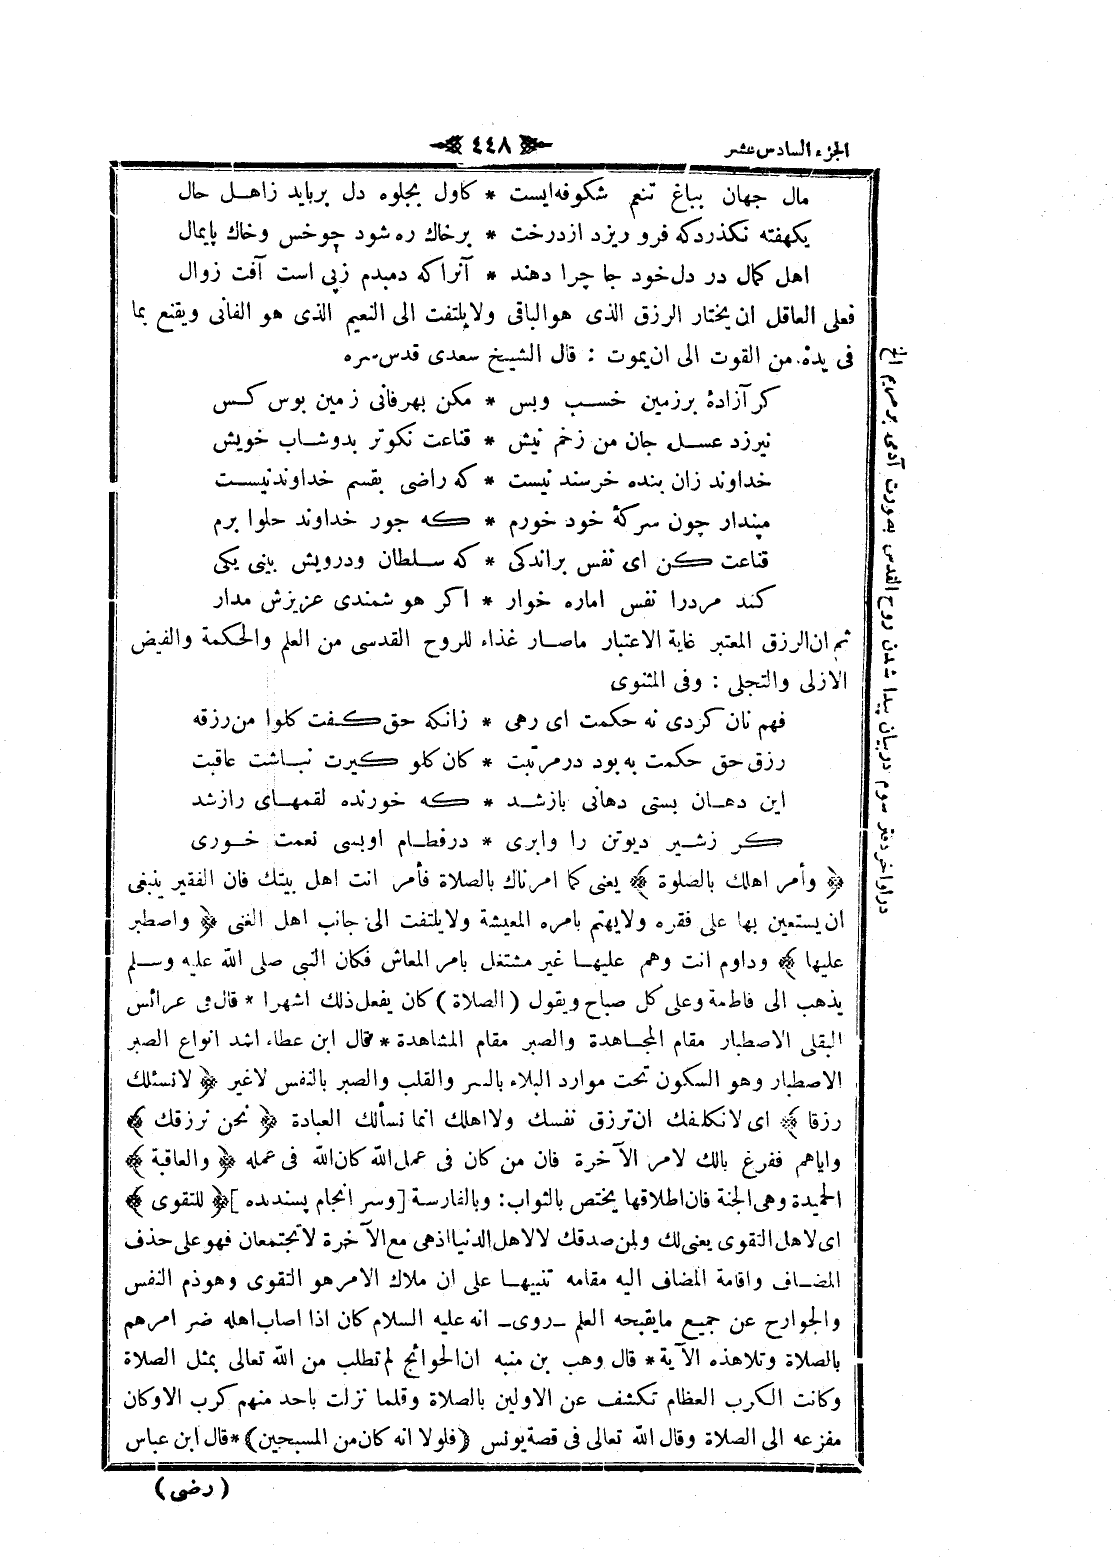 الجزء السادس عشر
٤٤٨
مال جهان بباغ تنعم شكوفه ايست * كاول بجلوه دل بربايد زاهل حال
يكهفته نكذردكه فرو ريزد ازدرخت * برخاك ره شود چوخس وخاك پايمال
اهل كمال در دل خود جا چرا دهند * آنراكه دمبدم زپى است آفت زوال
فعلى العاقل ان يختار الرزق الذى هو الباقى ولا يلتفت الى النعيم الذى هو الفانى ويقنع بما
فى يده من القوت الى ان يموت : قال الشيخ سعدى قدس سره
كر آزادۀ برزمين خسب وبس * مكن بهرفانى زمين بوس كس
نيرزد عسل جان من زخم نيش * قناعت نكوتر بدوشاب خويش
خداوند زان بنده خرسند نيست * كه راضى بقسم خداوندنيست
مپندار چون سركۀ خود خورم * كه جور خداوند حلوا برم
قناعت كن اى نفس براندكى * كه سلطان ودرويش بينى يكى
كند مردرا نفس اماره خوار * اكر هوشمندى عزيزش مدار
ثم ان الرزق المعتبر غاية الاعتبار ماصار غذاء للروح القدسى من العلم والحكمة والفيض
الازلى والتجلى : وفى المثنوى
فهم نان كردى نه حكمت اى رهى * زانكه حق كفت كلوا من رزقه
رزق حق حكمت به بود درمرتبت * كان كلو كيرت نباشت عاقبت
اين دهان بستى دهانى بازشد * كه خورنده لقمهاى رازشد
كر زشير ديوتن را وابرى * درفطام اوبسى نعمت خورى
﴿ وأمر اهلك بالصلوة ﴾ يعنى كما امرناك بالصلاة فأمر انت اهل بيتك فان الفقير ينبغى
ان يستعين بها على فقره ولايهتم بامره المعيشة ولايلتفت الى جانب اهل الغنى ﴿ واصطبر
عليها ﴾ وداوم انت وهم عليها غير مشتغل بامر المعاش فكان النبى صلى الله عليه وسلم
يذهب الى فاطمة وعلى كل صباح ويقول ( الصلاة ) كان يفعل ذلك اشهرا * قال فى عرائس
البقلى الاصطبار مقام المجاهدة والصبر مقام المشاهدة * قال ابن عطاء اشد انواع الصبر
الاصطبار وهو السكون تحت موارد البلاء بالسر والقلب والصبر بالنفس لاغير ﴿ لانسئلك
رزقا ﴾ اى لانكلفك ان ترزق نفسك ولا اهلك انما نسألك العبادة ﴿ نحن نرزقك ﴾
واياهم ففرغ بالك لامر الآخرة فان من كان فى عمل الله كان الله فى عمله ﴿ والعاقبة ﴾
الحميدة وهى الجنة فان اطلاقها يختص بالثواب : وبالفارسة [ وسر انجام پسنديده ] ﴿ للتقوى ﴾
اى لاهل التقوى يعنى لك ولمن صدقك لا لاهل الدنيا اذهى مع الآخرة لاتجتمعان فهو على حذف
المضاف واقامة المضاف اليه مقامه تنبيها على ان ملاك الامر هو التقوى وهو ذم النفس
والجوارح عن جميع مايقبحه العلم ـ روى ـ انه عليه السلام كان اذا اصاب اهله ضر امرهم
بالصلاة وتلا هذه الآية * قال وهب بن منبه ان الحوائج لم تطلب من الله تعالى بمثل الصلاة
وكانت الكرب العظام تكشف عن الاولين بالصلاة وقلما نزلت باحد منهم كرب الا وكان
مفزعه الى الصلاة وقال الله تعالى فى قصة يونس ( فلولا انه كان من المسبحين ) * قال ابن عباس
( رضى )
در اواخر دفتر سوم دربيان پيدا شدن روح القدس بصورت آدمى بر مريم الخ